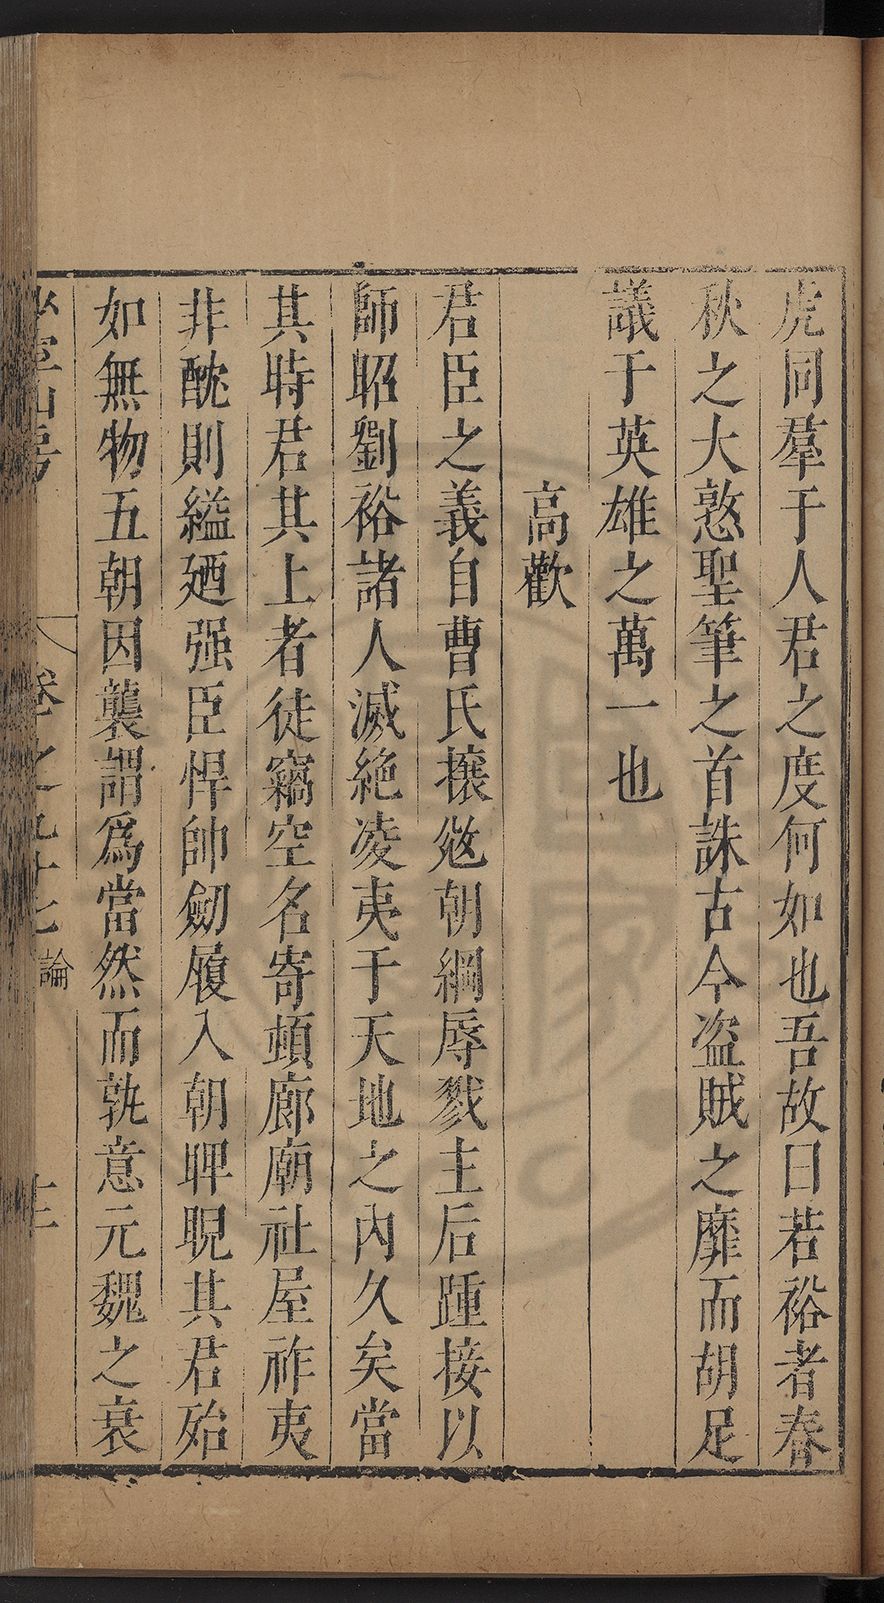 虎同羣于人君之度何如也吾故曰若裕者春
秋之大憝聖筆之首誅古今盗賊之靡而胡足
議于英雄之萬一也
高歡
君臣之義自曹氏攘敓朝綱辱戮主后踵接以
師昭劉裕諸人滅絶凌夷于天地之内久矣當
其時君其上者徒竊空名寄頓廊廟社屋祚夷
非酖則縊廼强臣悍帥劒履入朝睥睨其君殆
如無物五朝因襲謂爲當然而孰意元魏之衰
山房 卷之九十七 論 十二